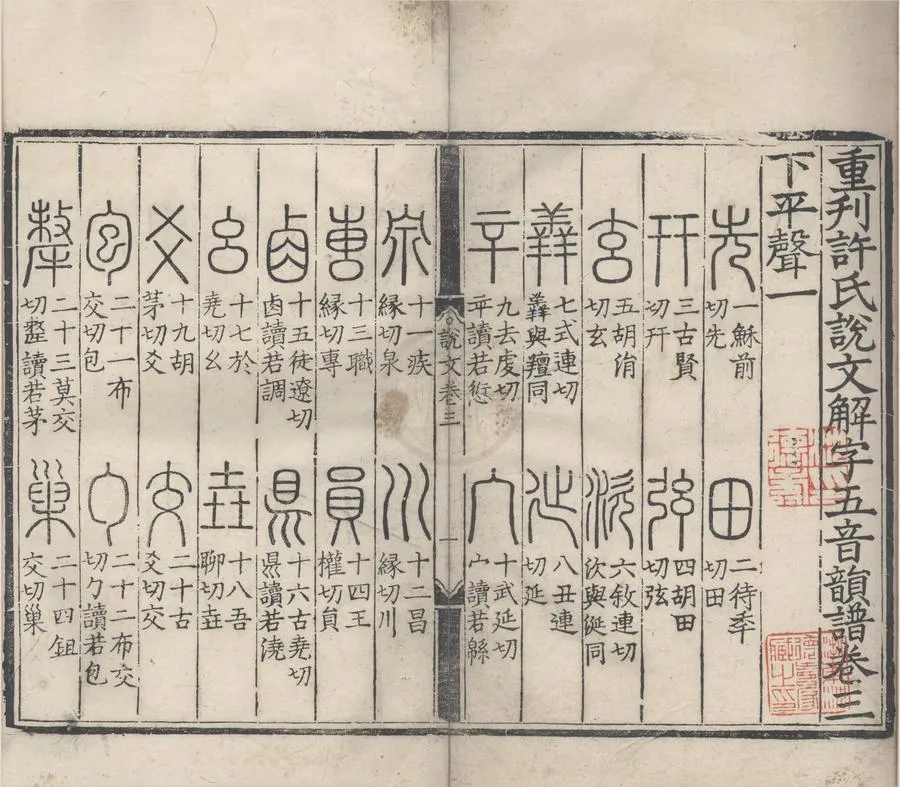 重刊許氏說文解字五音韻譜卷三
下平聲一
先 一穌前切先
田 二待秊切田
幵 三古賢切幵
弦 四胡田切弦
玄 五胡涓切玄
㳄 六敘連切㳄與涎同
羴 七式連切羴與羶同
延 八丑連切延
䇂 九去虔切䇂讀若愆
宀 十武延切宀讀若緜
說文卷三
一
泉 十一疾緣切泉
川 十二昌緣切川
叀 十三職緣切專
員 十四王權切員
卤 十五徒遼切卤讀若調
県 十六古堯切県讀若澆
幺 十七於堯切幺
垚 十八吾聊切垚
爻 十九胡茅切爻
交 二十古爻切交
包 二十一布交切包
勹 二十二布交切勹讀若包
犛 二十三莫交切犛讀若茅
巢 二十四鉏交切巢